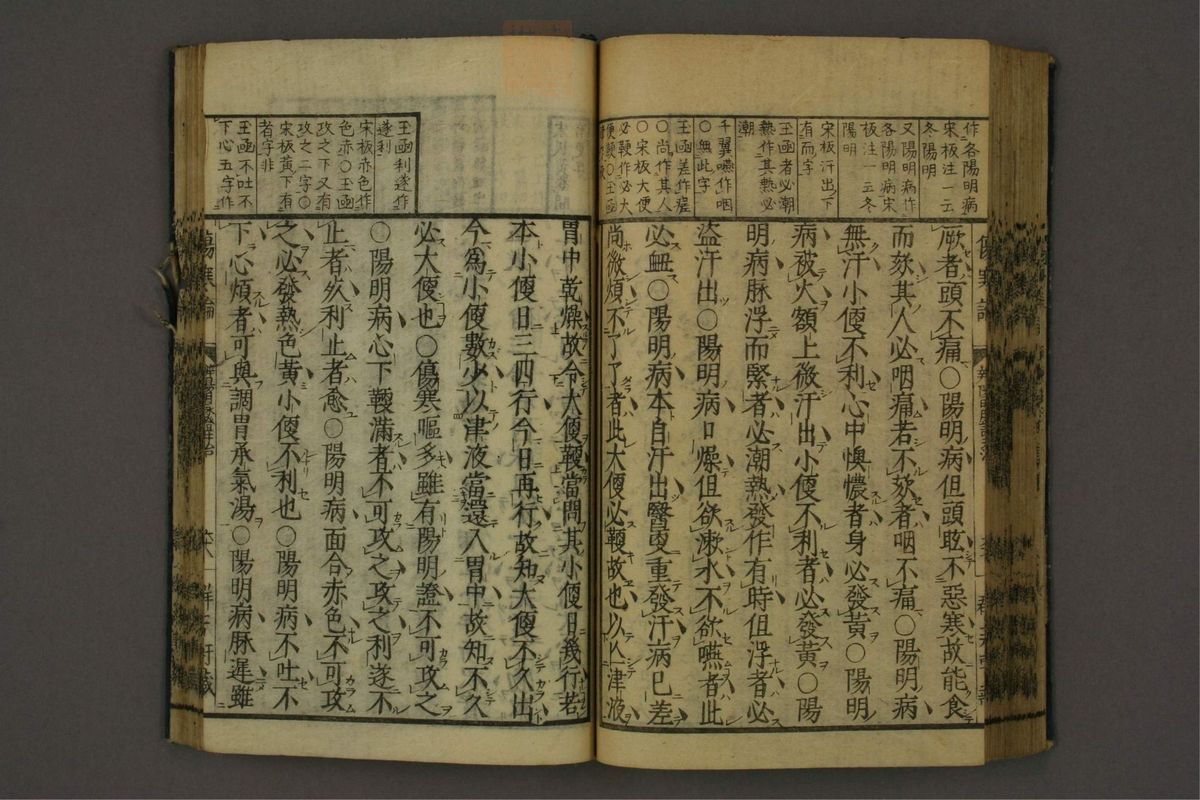 作各陽明病
宋板注一云
冬陽明
又陽明病作
各陽明病宋
板注一云冬
陽明
宋板汗出下
有而字
玉函者必潮
熱作其熱必
潮
千翼嚥作咽
○無此字
玉函差作瘥
○尚作其人
○宋板大便
必鞕作必大
便鞕○玉函
厥者頭不痛○陽明病但頭眩不惡寒故能食
而欬其人必咽痛若不欬者咽不痛○陽明病
無汗小便不利心中懊憹者身必發黃○陽明
病被火額上微汗出小便不利者必發黃○陽
明病脉浮而緊者必潮熱發作有時但浮者必
盜汗出○陽明病口燥但欲漱水不欲嚥者此
必衄○陽明病本自汗出醫更重發汗病已差
尚微煩不了了者此大便必鞕故也以亡津液
玉函利遂作
遂利
宋板赤色作
色赤○玉函
攻之下又有
攻之二字○
宋板黃下有
者字非
玉函不吐不
下心五字作
胃中乾燥故令大便鞕當問其小便日幾行若
本小便日三四行今日再行故知大便不久出
今為小便數少以津液當還入胃中故知不久
必大便也○傷寒嘔多雖有陽明證不可攻之
○陽明病心下鞕滿者不可攻之攻之利遂不
止者死利止者愈○陽明病面合赤色不可攻
之必發熱色黃小便不利也○陽明病不吐不
下心煩者可與調胃承氣湯○陽明病脉遲雖
傷寒論